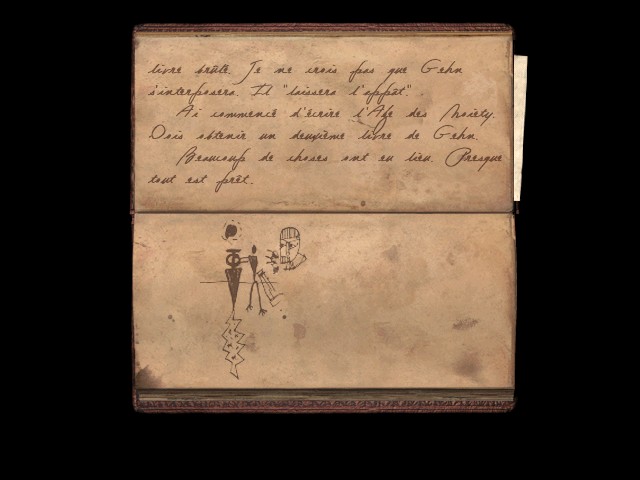 livre brûlé. Je ne crois pas que Gehn
s'interposera. Il "laissera l'appât".
Ai commencé d'écrire l'Age des Moiety.
Dois obtenir un deuxième livre de Gehn.
Beaucoup de choses ont eu lieu. Presque
tout est prêt.